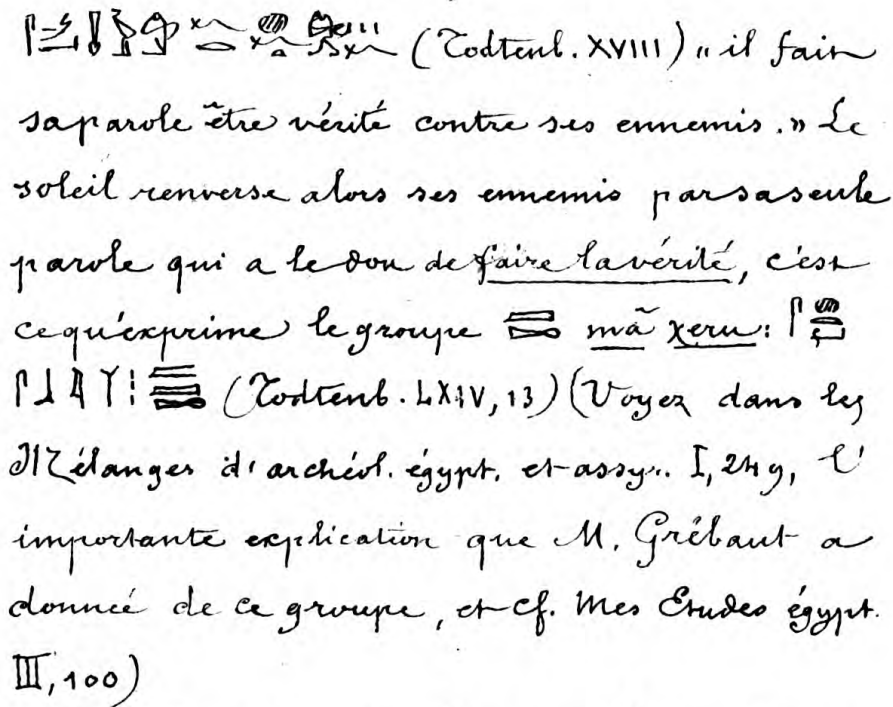 (Todtenb. XVIII) « il fait
sa parole être vérité contre ses ennemis. » Le
soleil renverse alors ses ennemis par sa seule
parole qui a le don de faire la vérité, c'est
ce qu'exprime le groupe mā χeru:
(Todtenb. LXIV, 13) (Voyez dans les
Mélanges d'archéol. égypt. et assyr. I, 249, l'
importante explication que M. Grébaut a
donnée de ce groupe, et cf. mes Etudes égypt.
III, 100)